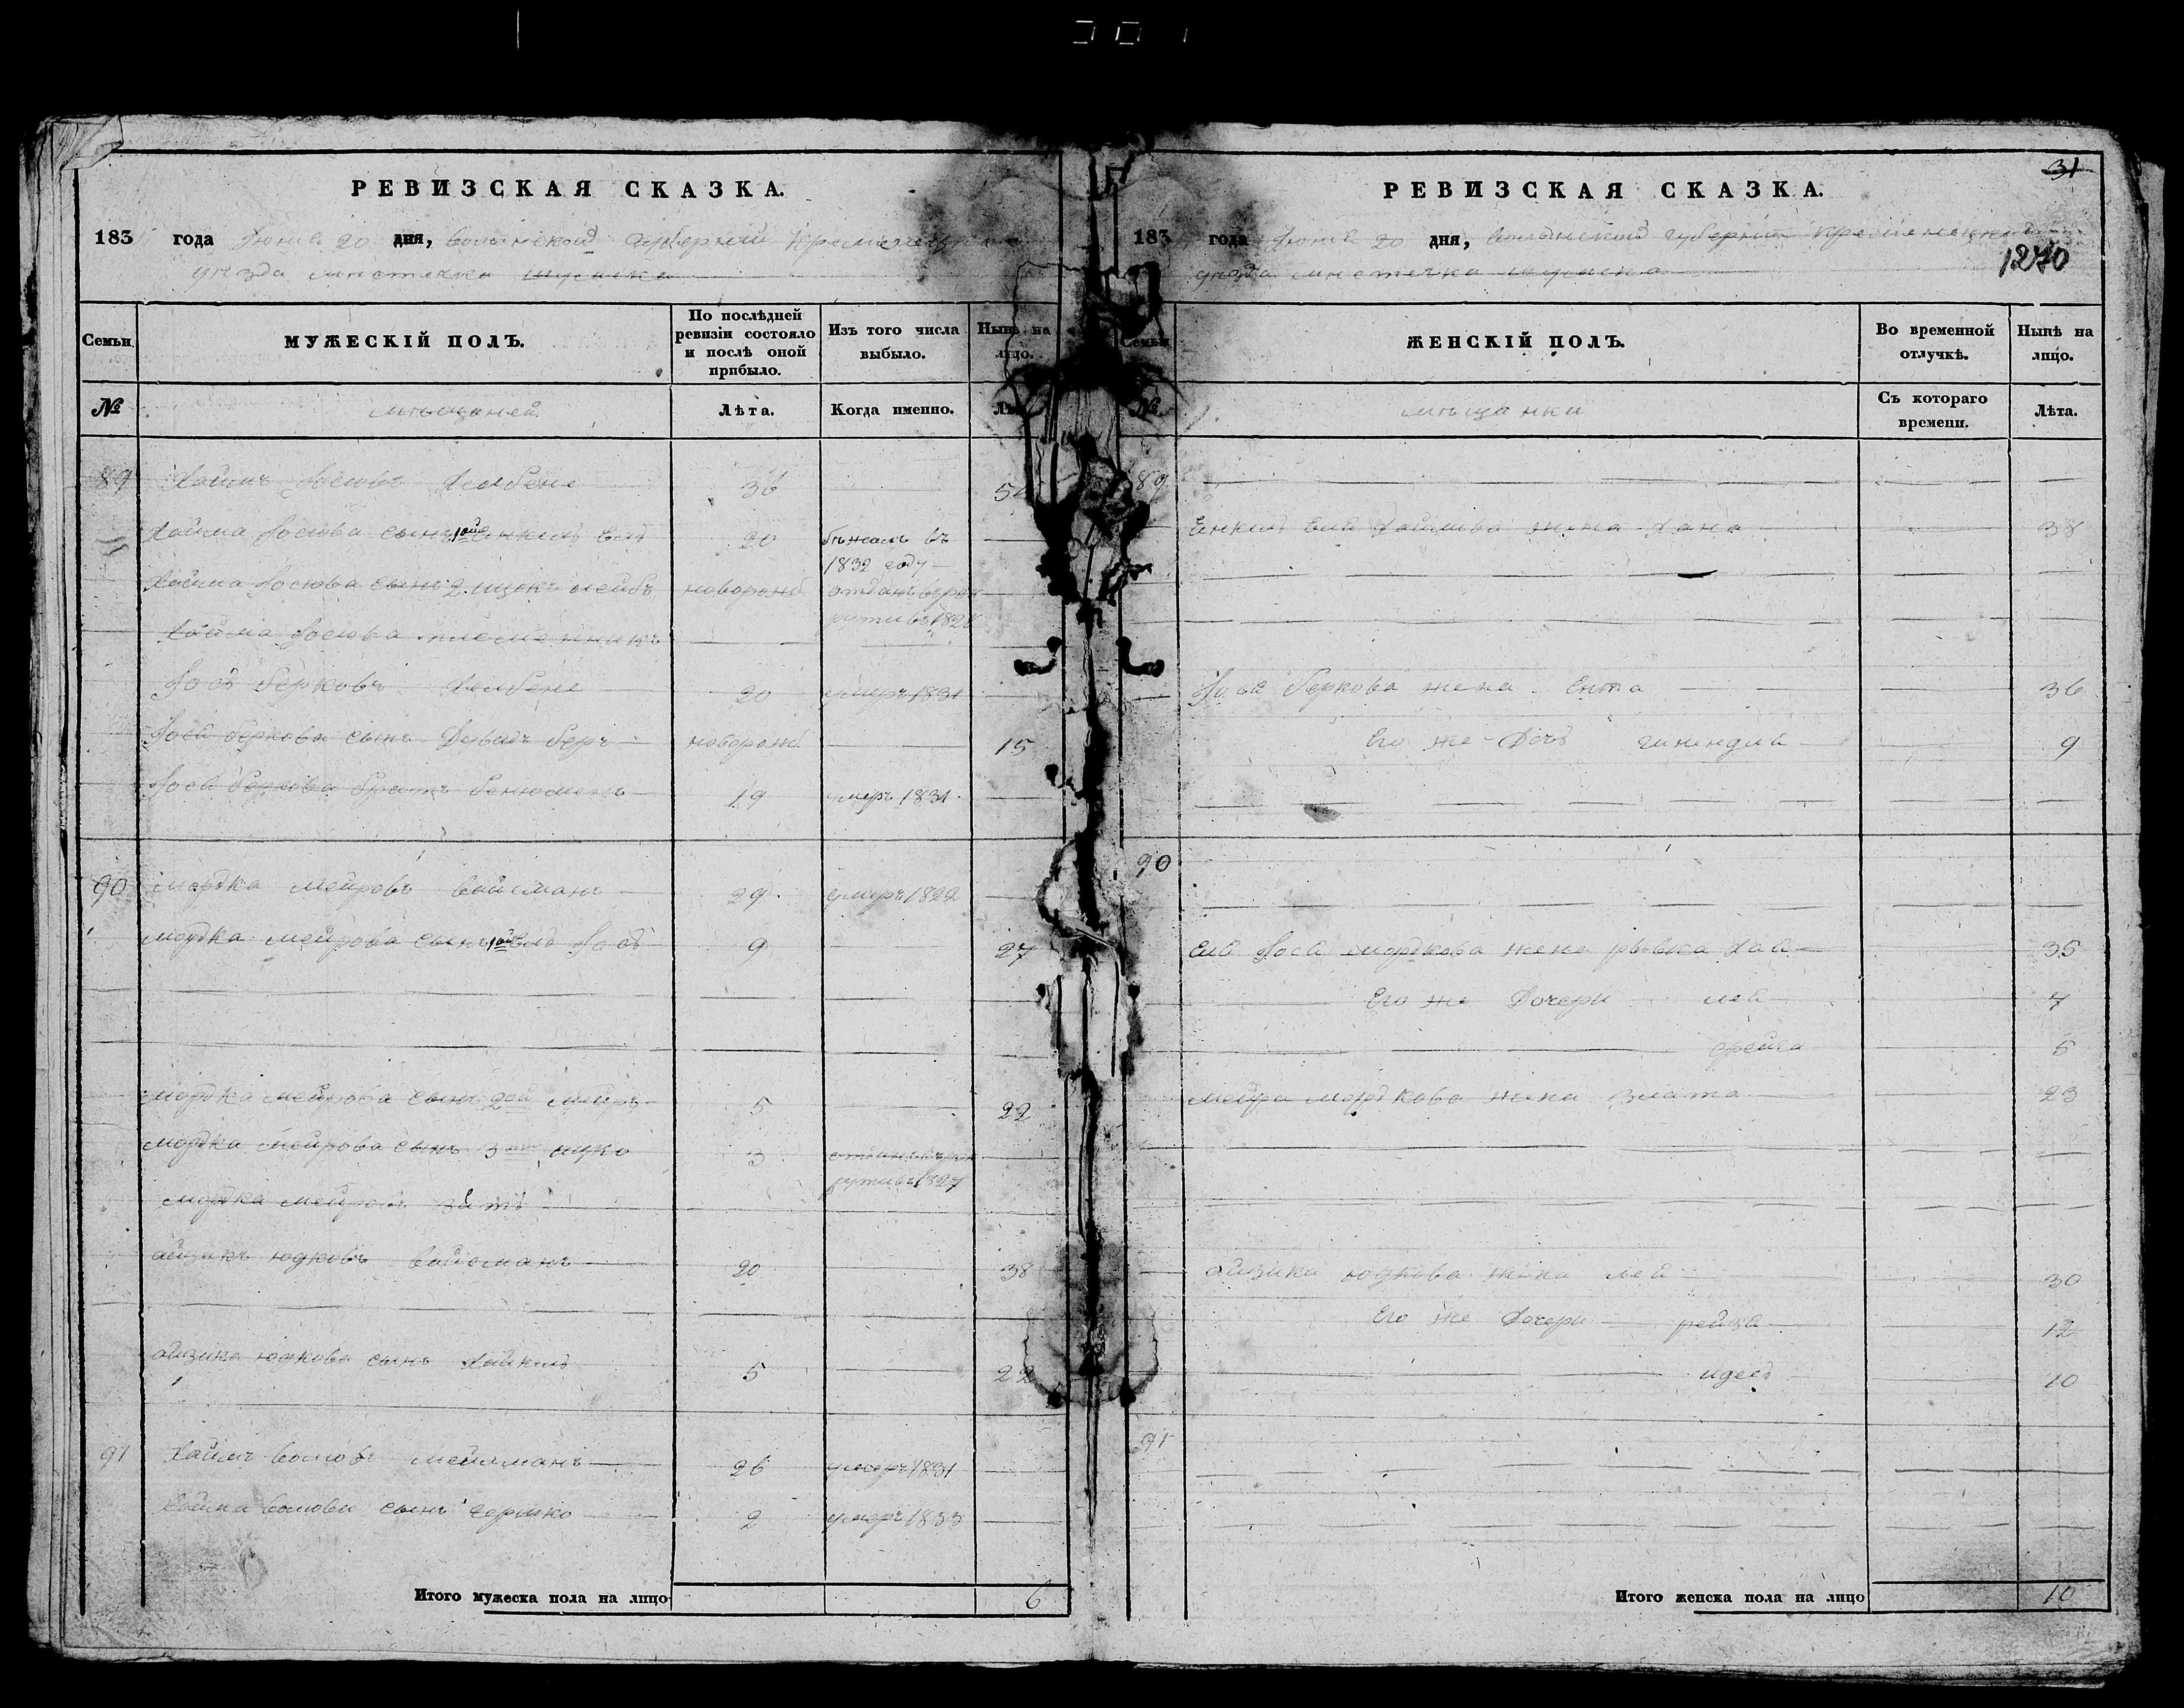 РЕВИЗСКАЯ СКАЗКА.
183 года Июня 20 дня, Волынской Губернии Кременецкаго
уезда местечка Шумска
Семьи
МУЖЕСКІЙ ПОЛЪ.
По послѣдней ревизіи состояло и послѣ оной прибыло.
Изъ того числа выбыло.
Нынѣ на лицо.
№
мещаней.
Лѣта.
Когда именно.
Лѣ
89 Хаимъ Иосювъ 36 54
Хаима Иосюва сынъ 1ой Енкель Ель 20 бежалъ въ
1832 году
Хаима Иосюва сынъ 2. Ицекъ Лейбъ новорожд отданъ въ рек
руты въ 182
Хаима Иосюва племенникъ
Иось Берковъ 20 умеръ 1831
Иося Беркова сынъ Давидъ Беръ новорожд. 15
Иося Беркова братъ Бенюминъ 19 умеръ 1831.
90 Мордка Мейровъ Вайсманъ 29. умеръ 1822
Мордка Мейрова сынъ 1ой Ель Иось 9 27
Мордка Мейрова сынъ 2ой Мейръ 5 22
Мордка Мейрова сынъ 3 Ицко 3 отданъ въ рек
руты въ 1827
Мордка Мейровъ зять
Айзикъ Юдковъ Вайсманъ 20 38
Айзика Юдкова сынъ Хайкель 5 22
91 Хаимъ Волювъ Мейлманъ 26 умеръ 1831
Хаима Волюва сынъ Гершко 2 умеръ 1833
Итого мужеска пола на лицо 6
31
РЕВИЗСКАЯ СКАЗКА.
183 года Июня 20 дня, Волынской Губернии Кременецкаго
уезда местечка Шумска
1270
Семьи
ЖЕНСКІЙ ПОЛЪ.
Во временной отлучкѣ.
Нынѣ на лицо.
№
мещанки
Съ котораго времени.
Лѣта.
89
Енкеля Еля Хаимова жена Хана 38
Иося Беркова жена Ента 36
Его же Дочь 9
90
Еля Иося Мордкова жена Ривка Хая 35
Его же Дочери Лея 7
Фейга 5
Мейра Мордкова жена Злата 23
Айзика Юдкова жена Лея 30
Его же Дочери Рейзя 12
Идесь 10
91
Итого женска пола на лицо 10